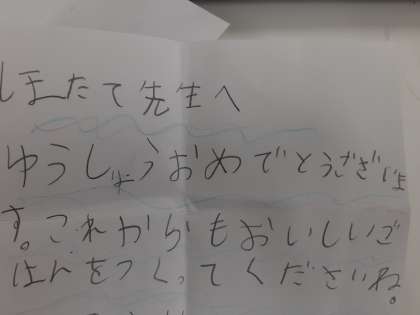 ほたて先生へ
ゆうしょうおめでとうございま
す。これからもおいしいご
はんをつくってくださいね。